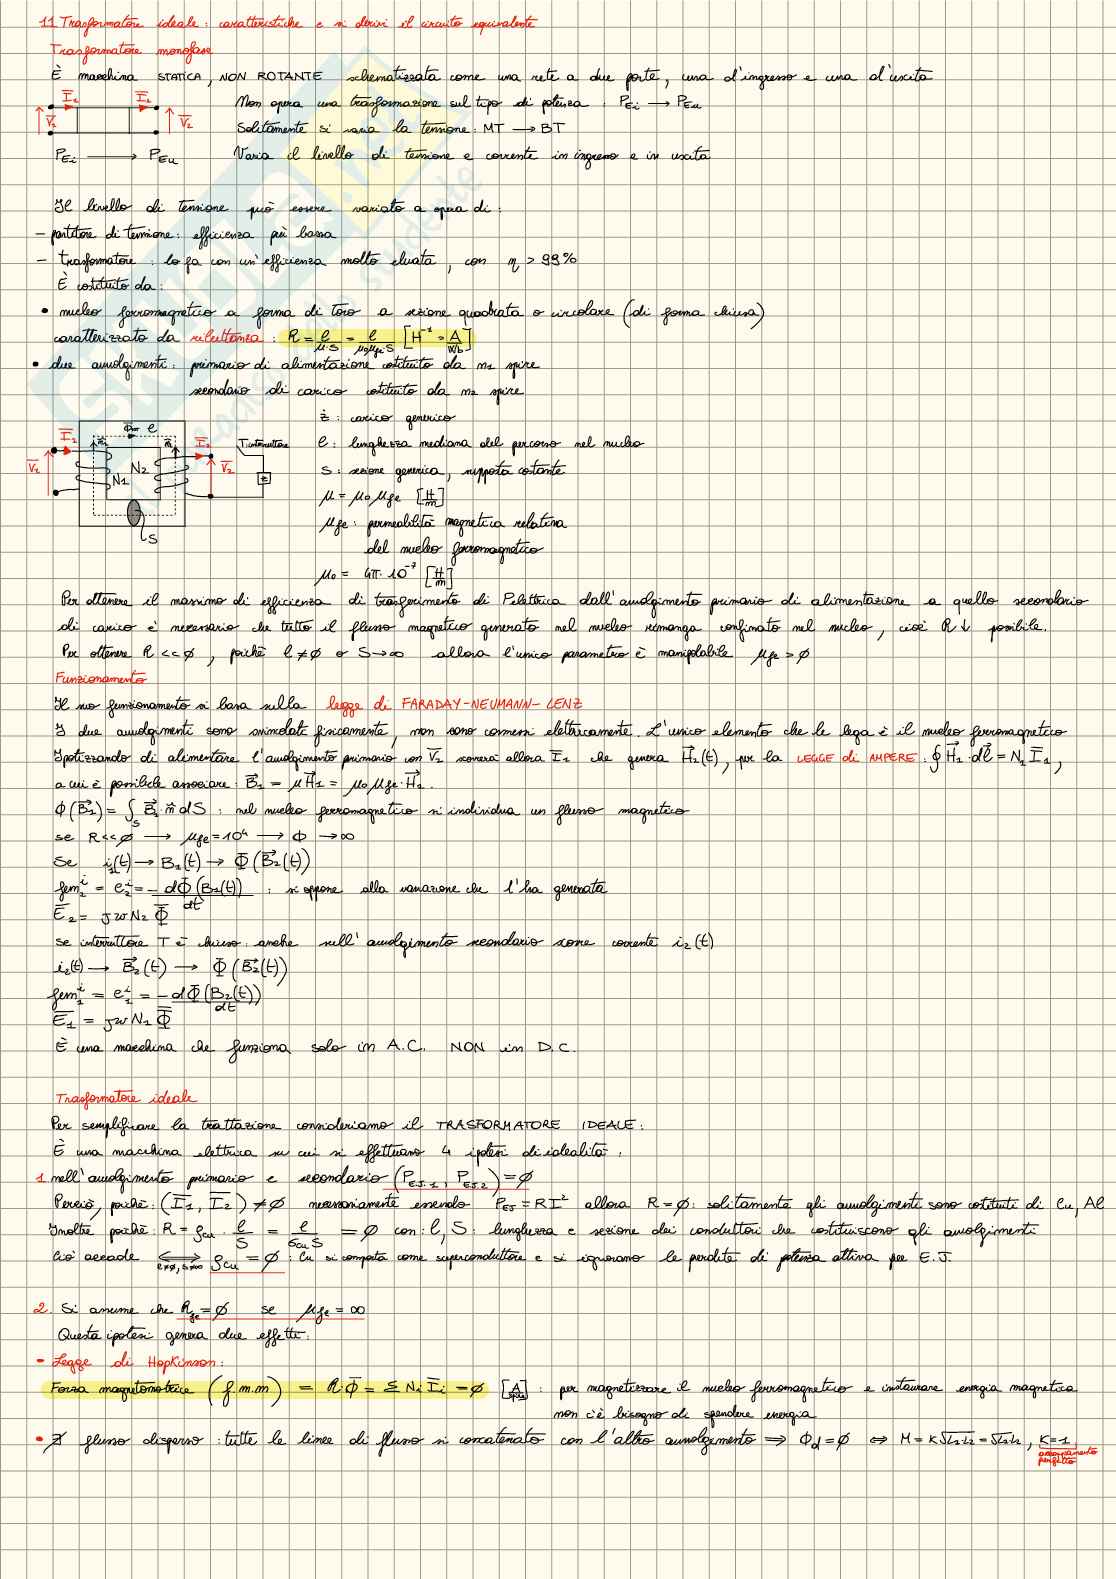 11 Trasformatore ideale: caratteristiche e si derivi il circuito equivalente
Trasformatore monofase
È macchina STATICA, NON ROTANTE schematizzata come una rete a due porte, una d'ingresso e una d'uscita
I̅₁ I̅₂ Non opera una trasformazione sul tipo di potenza: P_Ei → P_Eu
V̅₁ V̅₂ Solitamente si varia la tensione: MT → BT
P_Ei → P_Eu Varia il livello di tensione e corrente in ingresso e in uscita
Il livello di tensione può essere variato a opera di:
- partitore di tensione: efficienza più bassa
- trasformatore: lo fa con un'efficienza molto elevata, con η > 99%
È costituito da:
• nucleo ferromagnetico a forma di toro a sezione quadrata o circolare (di forma chiusa)
caratterizzato da riluttanza: R = ℓ/(μ·S) = ℓ/(μ₀μfe·S) [H⁻¹ = A/Wb]
• due avvolgimenti: primario di alimentazione costituito da n₁ spire
secondario di carico costituito da n₂ spire
ż: carico generico
ℓ: lunghezza mediana del percorso nel nucleo
S: sezione generica, supposta costante
μ = μ₀μfe [H/m]
μfe: permeabilità magnetica relativa
del nucleo ferromagnetico
μ₀ = 4π·10⁻⁷ [H/m]
I̅₁ Φ̅m ℓ I̅₂ T interruttore
V̅₁ N1 N2 V̅₂ ż
S
Per ottenere il massimo di efficienza di trasferimento di Pelettrica dall'avvolgimento primario di alimentazione a quello secondario
di carico è necessario che tutto il flusso magnetico generato nel nucleo rimanga confinato nel nucleo, cioè R ↓ possibile.
Per ottenere R << ∅, poichè ℓ ≠ ∅ o S → ∞ allora l'unico parametro è manipolabile μfe > ∅
Funzionamento
Il suo funzionamento si basa sulla legge di FARADAY-NEUMANN-LENZ
I due avvolgimenti sono svincolati fisicamente, non sono connessi elettricamente. L'unico elemento che le lega è il nucleo ferromagnetico
Ipotizzando di alimentare l'avvolgimento primario con V̅₁ scorrerà allora I̅₁ che genera H⃗₁(t), per la LEGGE di AMPERE: ∮H⃗₁·dℓ⃗ = N₁I̅₁,
a cui è possibile associare: B⃗₁ = μH⃗₁ = μ₀μfe·H⃗₁.
Φ(B⃗₁) = ∫_S B⃗₁·n⃗ dS: nel nucleo ferromagnetico si individua un flusso magnetico
se R << ∅ → μfe = 10⁴ → Φ → ∞
Se i₁(t) → B₁(t) → Φ(B⃗₁(t))
fem₂ⁱ = e₂ⁱ = -dΦ(B₁(t))/dt: si oppone alla variazione che l'ha generata
E̅₂ = jωN₂Φ̅
se interruttore T è chiuso: anche nell'avvolgimento secondario scorre corrente i₂(t)
i₂(t) → B⃗₂(t) → Φ(B⃗₂(t))
fem₁ⁱ = e₁ⁱ = -dΦ(B₂(t))/dt
E̅₁ = jωN₁Φ̅
È una macchina che funziona solo in A.C. NON in D.C.
Trasformatore ideale
Per semplificare la trattazione consideriamo il TRASFORMATORE IDEALE:
È una macchina elettrica su cui si effettuano 4 ipotesi di idealità.
1 nell'avvolgimento primario e secondario (P_EJ,1, P_EJ,2) = ∅
Perciò, poichè: (I̅₁, I̅₂) ≠ ∅ necessariamente essendo P_EJ = RI² allora R = ∅: solitamente gli avvolgimenti sono costituiti di Cu, Al
Inoltre poichè: R = ρcu·ℓ/S = ℓ/(σcu S) = ∅ con: ℓ, S: lunghezza e sezione dei conduttori che costituiscono gli avvolgimenti
Ciò accade ⟺ (ℓ≠∅, S≠∞) ρcu = ∅: Cu si comporta come superconduttore e si ignorano le perdite di potenza attiva per E.J.
2. Si assume che Rfe = ∅ se μfe = ∞
Questa ipotesi genera due effetti:
- Legge di Hopkinson:
Forza magnetomotrice (f.m.m) = R·Φ̅ = ΣNᵢI̅ᵢ = ∅ [A/spire]: per magnetizzare il nucleo ferromagnetico e instaurare energia magnetica
non c'è bisogno di spendere energia
• ∄ flusso disperso: tutte le linee di flusso si concatenato con l'altro avvolgimento ⟹ Φd = ∅ ⟺ M = K√L₁L₂ = √L₁L₂, K=1
accoppiamento
perfetto